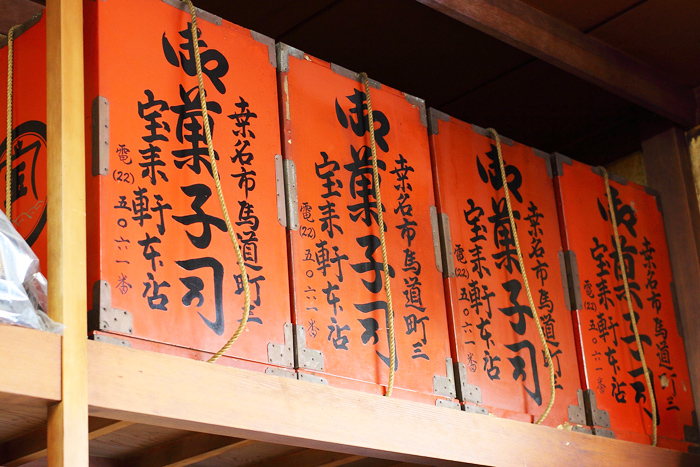 桒名市馬道町三
御菓子司
宝来軒本店
電(22)五〇六一番
桒名市馬道町三
御菓子司
宝来軒本店
電(22)五〇六一番
桒名市馬道町三
御菓子司
宝来軒本店
電(22)五〇六一番
桒名市馬道町三
御菓子司
宝来軒本店
電(22)五〇六一番